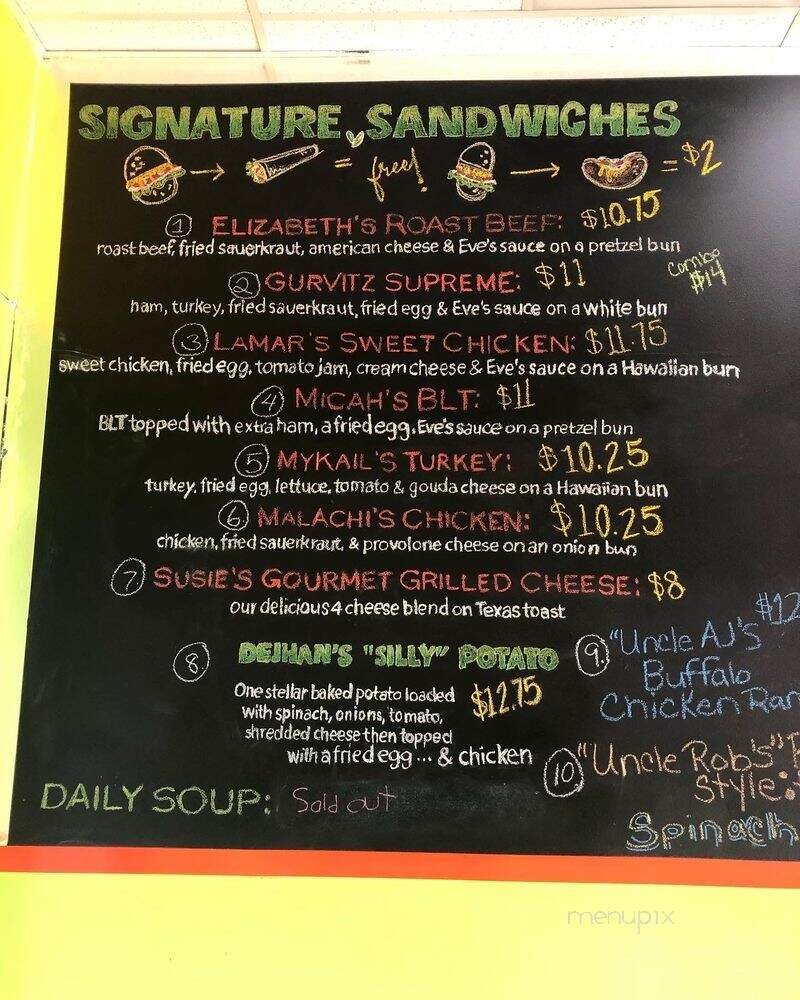 SIGNATURE SANDWICHES
= free! = $2
1 ELIZABETH'S ROAST BEEF: $10.75
roast beef, fried sauerkraut, american cheese & Eve's sauce on a pretzel bun
2 GURVITZ SUPREME: $11
Combo
$14
ham, turkey, fried sauerkraut, fried egg & Eve's sauce on a white bun
3 LAMAR'S SWEET CHICKEN: $11.75
sweet chicken, fried egg, tomato jam, cream cheese & Eve's sauce on a Hawaiian bun
4 MICAH'S BLT: $11
BLT topped with extra ham, a fried egg. Eve's sauce on a pretzel bun
5 MYKAIL'S TURKEY: $10.25
turkey, fried egg, lettuce, tomato & gouda cheese on a Hawaiian bun
6 MALACHI'S CHICKEN: $10.25
chicken, fried sauerkraut, & provolone cheese on an onion bun
7 SUSIE'S GOURMET GRILLED CHEESE: $8
our delicious 4 cheese blend on Texas toast
8. DEJHAN'S "SILLY" POTATO
One stellar baked potato loaded
with spinach, onions, tomato,
shredded cheese then topped
with a fried egg... & chicken
$12.75
$12
9. "Uncle AJ's
Buffalo
Chicken
10 "Uncle Rob's"
Style:
Spinach
DAILY SOUP: Sold out
menupix